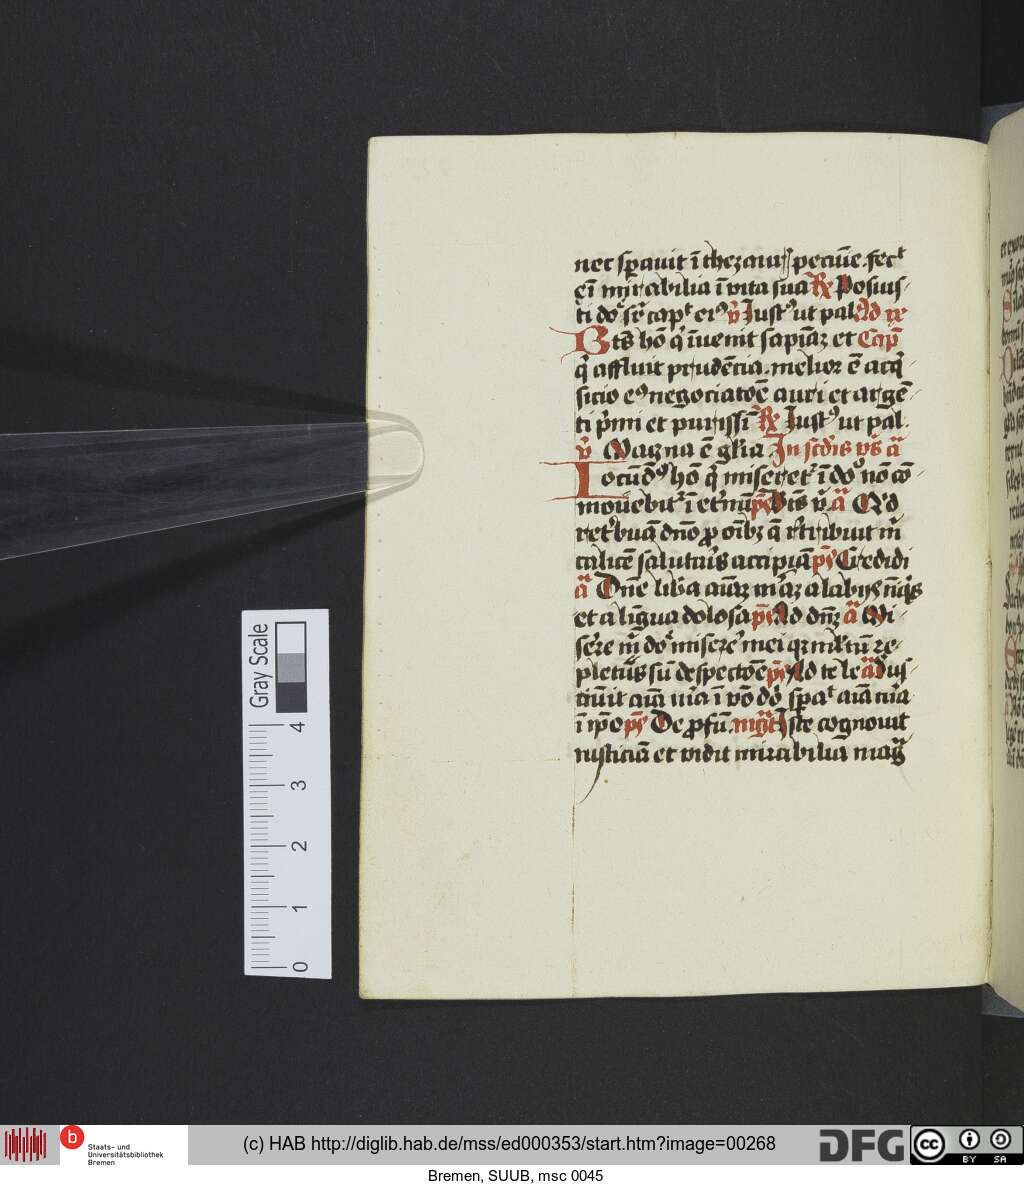 nec sꝑauit ī thezauꝛ pecuīe. fecᵗ
eī mirabilia ī vita sua R̷ Posuis-
ti dōe suꝑ capᵗ eiꝰ v̄ Justꝰ ut pal. Ad ix
Bt̄s hō q̄ īuenit sapiā et Cap̄
q̄ affluit prudēcia. melior ē acq̄
sicio eiꝰ negociatōe auri et argē-
ti p̄mi et purissī R̷ Justꝰ ut pal.
v̄ Magna ē gl̄ia In scd̄is vs̄ a̅
Iocūdꝰ hō q̄ miseretᵗ ī dōo nō cō
mouebitᵗ ī et̄nū p̄s Bt̄s v̄ a̅ Qd̄
ret'buā dn̄o ꝓ oībꝫ q̄ r̄tribuit m̄
calicē salutaris accipiā p̄s Credidi
a̅ Dn̄e lib̄a aīaꝫ m̄aꝫ a labijs īiq̄s
et a līgua dolosa p̄s Ad dn̄ꝫ a̅ Mi-
sere m̄ dōe misere mei qꝫ ml̄tū re-
pletus sū despectōe p̄s Ad te le a̅ Sus-
tinuit aīa m̄a ī v̄bo dō sꝑaᵗ aīa m̄a
ī ip̄o p̄s De ꝓfū. mgt̄ Iste cognouit
iusticiā et vidit mirabilia mag̅
Gray Scale
4
3
2
1
0
b
Staats- und
Universitätsbibliothek
Bremen
(c) HAB http://diglib.hab.de/mss/ed000353/start.htm?image=00268
DFG
cc
BY SA
Bremen, SUUB, msc 0045